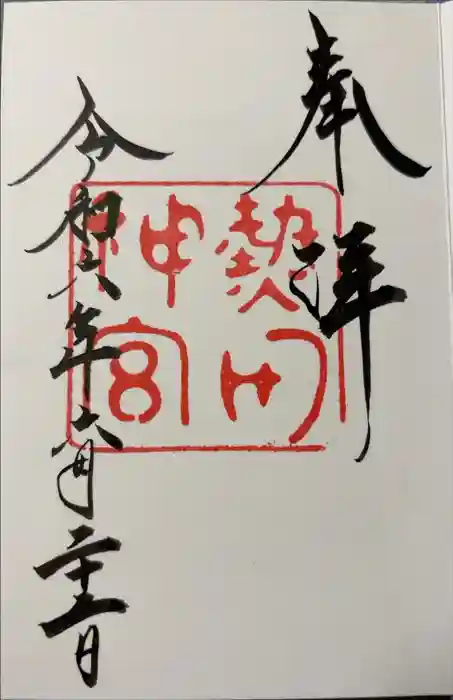 奉拝
熱田
神宮
令和六年六月二十一日